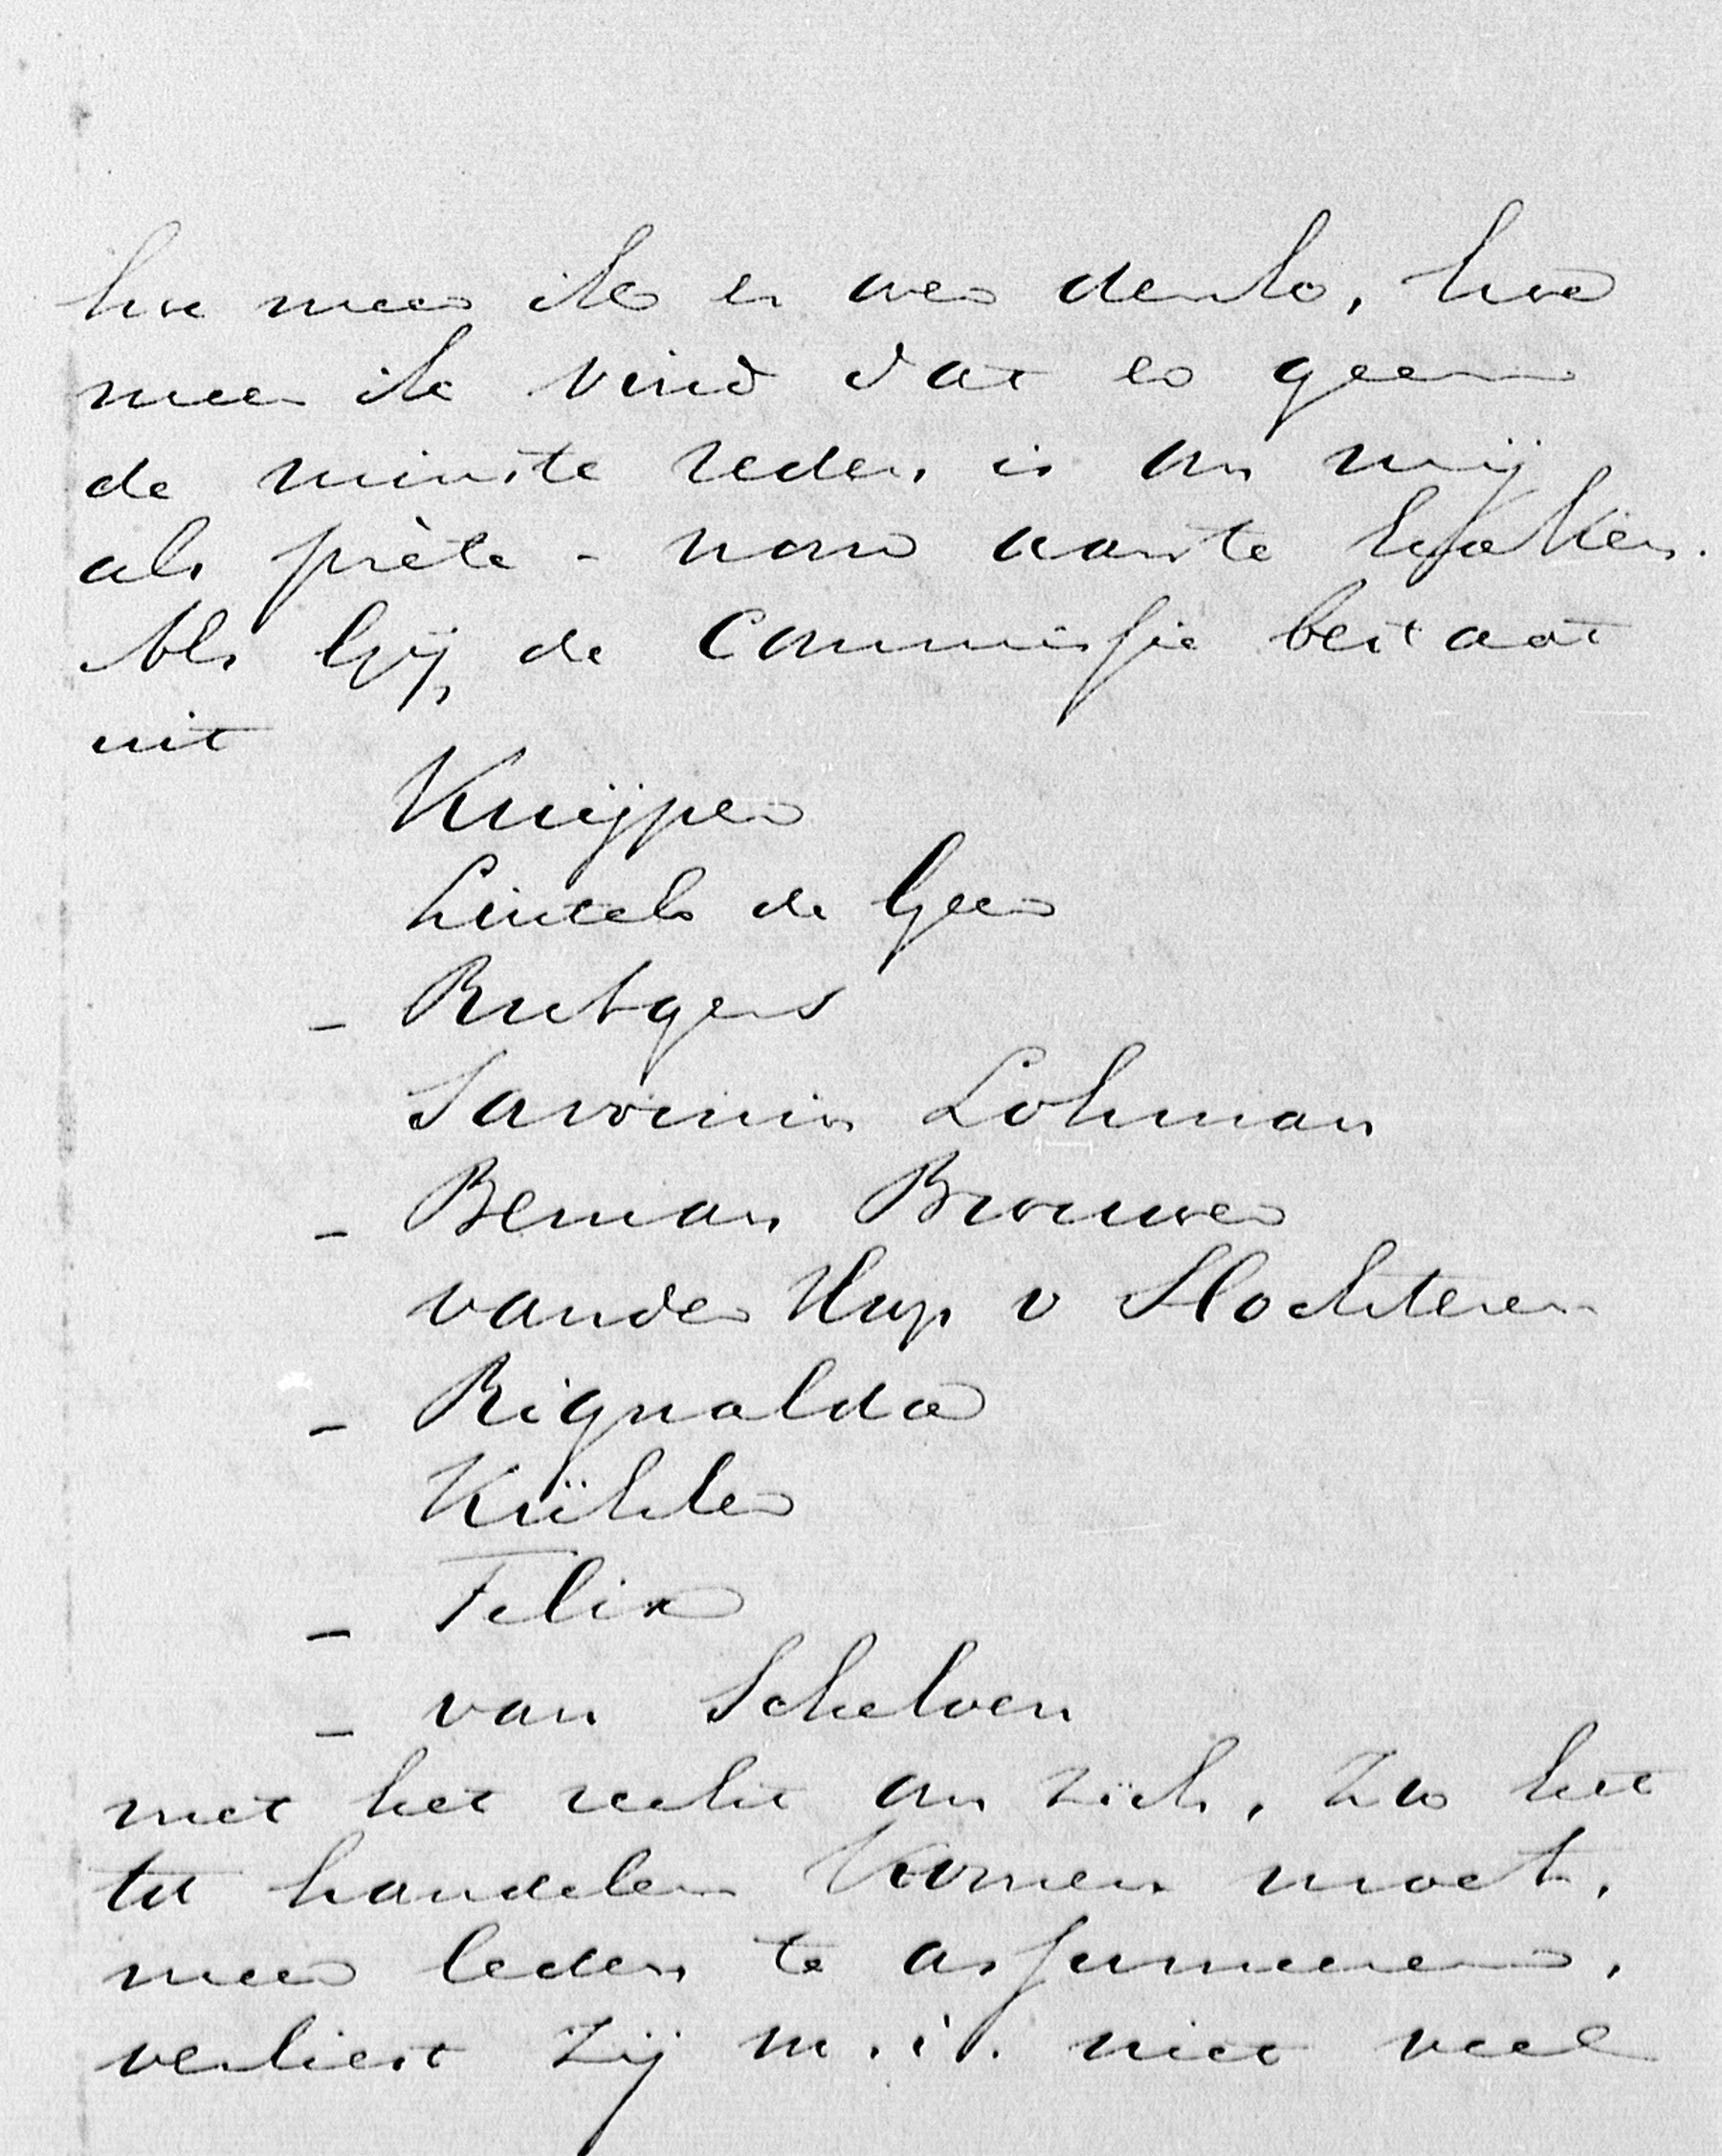 hoe meer ik er over denk, hoe
meer ik vind dat er geen
de minste reden is om mij
als prête-nom aan te
Als gij, de Commissie bestaat
uit
Kuijper
Lintelo de Geer
- Rutgers
Savornin Lohman
- Beman Brouwer
vander Hup v Slochteren
- Rignalda
Kühler
- Felix
- van Schelven
met het recht om zich, zoo het
tot handelen komen moet,
meer leden te assumeeren,
verliest zij m.i. niet veel